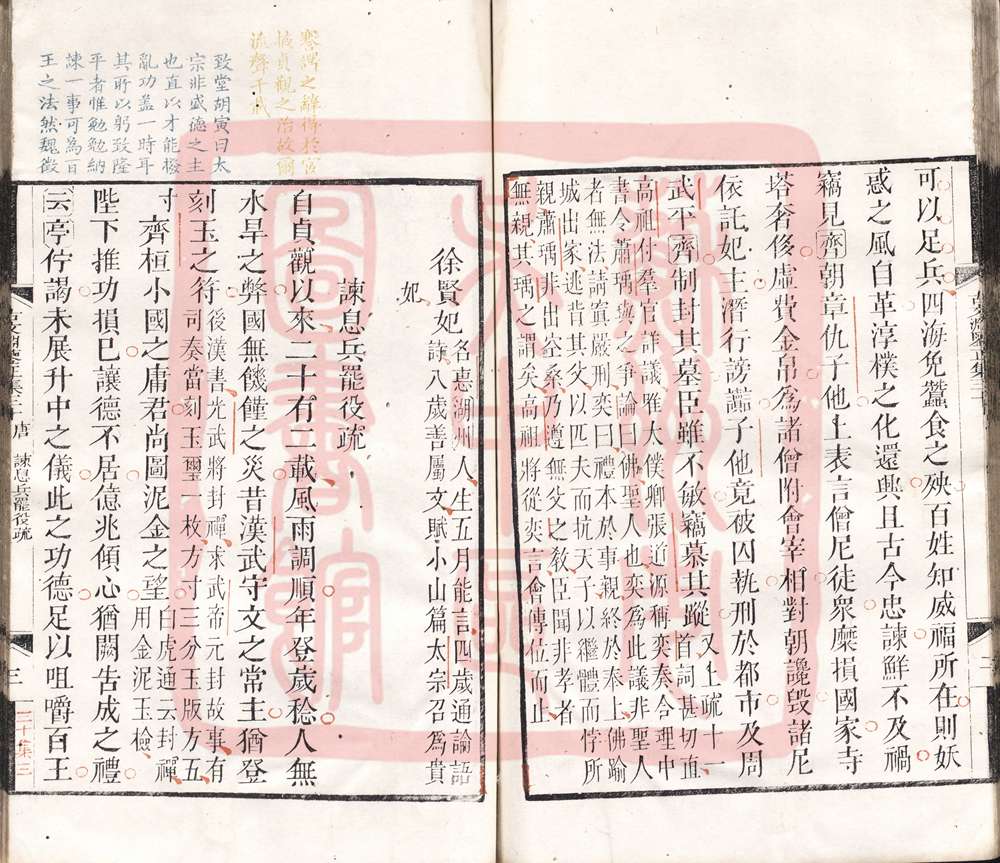 可以足兵四海免蠶食之殃百姓知威福所在則妖
惑之風自革淳樸之化還興且古今忠諫鮮不及禍
竊見齊朝章仇子他上表言僧尼徒衆糜損國家寺
塔奢侈虛費金帛爲諸僧附會宰相對朝讒毀諸尼
依託妃主潛行謗讟子他竟被囚執刑於都市及周
武平齊制封其墓臣雖不敏竊慕其蹤又上疏十一
首詞甚切直
高祖付羣官詳議唯太僕卿張道源稱奕奏合理中
書令蕭瑀與之爭論曰佛聖人也奕爲此議非聖人
者無法請寘嚴刑奕曰禮本於事親終於奉上佛踰
城出家逃背其父以匹夫而抗天子以繼體而悖所
親蕭瑀非出空桑乃遵無父之敎臣聞非孝者
無親其瑀之謂矣高祖將從奕言會傳位而止
徐賢妃名惠湖州人生五月能言四歲通論語
詩八歲善屬文賦小山篇太宗召爲貴
妃
諫息兵罷役疏
自貞觀以來二十有二載風雨調順年登歲稔人無
水旱之弊國無饑饉之災昔漢武守文之常主猶登
刻玉之符後漢書光武將封禪求武帝元封故事有
司奏當刻玉璽一枚方寸三分玉版方五
寸齊桓小國之庸君尚圖泥金之望白虎通云封禪
用金泥玉檢
陛下推功損已讓德不居億兆傾心猶闕告成之禮
云亭佇謁未展升中之儀此之功德足以咀嚼百王
寒諤之
得於宮
掖貞觀之治故爾
流聲千載
致堂胡寅曰太
宗非盛德之主
也直以才能撥
亂功蓋一時耳
其所以躬致隆
平者惟勉勉納
諫一事可爲百
王之法然魏徵
唐
諫息兵罷役疏
三
二